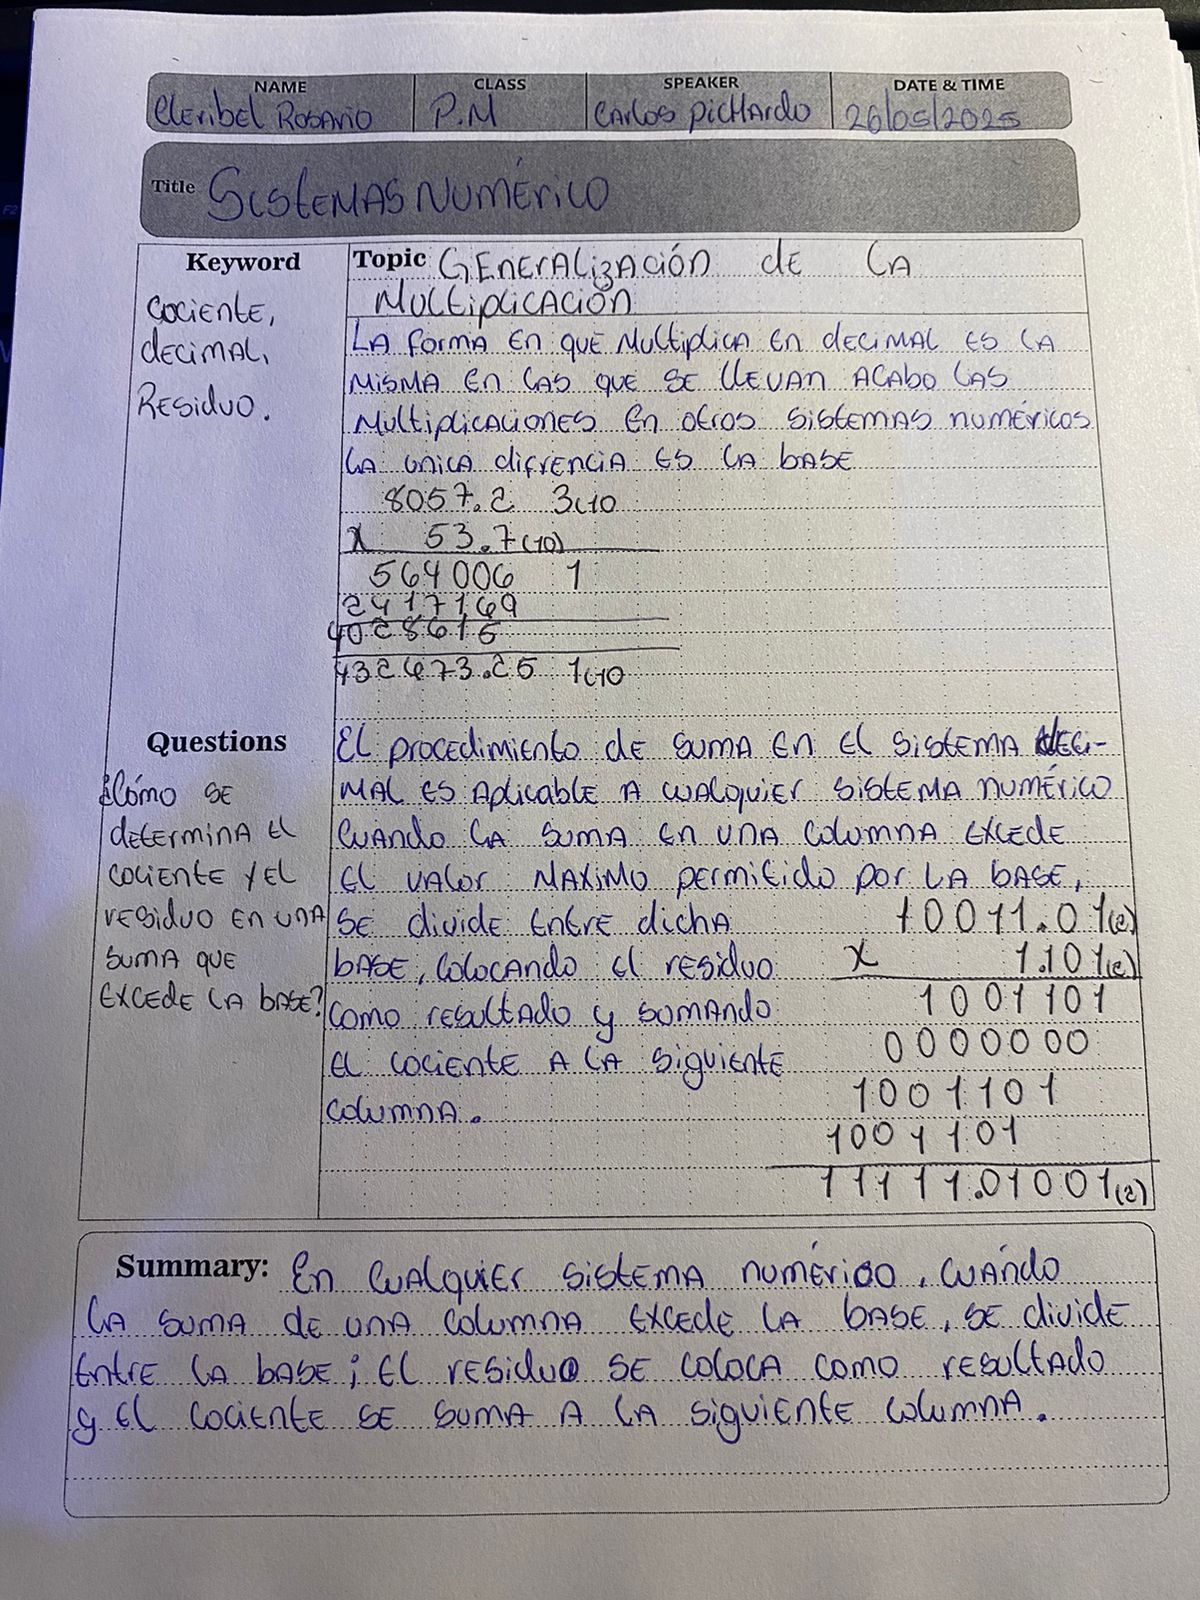 NAME CLASS SPEAKER DATE & TIME
Cleribel Rosario P.M Carlos Pichardo 26/05/2025
Title Sistemas Numérico
Keyword
Cociente,
decimal,
Residuo.
Topic Generalización de la
Multiplicación
La forma en que Multiplica en decimal es la
misma en las que se llevan acabo las
Multiplicaciones en otros sistemas numéricos
la unica difrencia es la base
8057.2 3(10
x 53.7(10)
564006 1
2417169
4028615
432673.25 1(10
Questions
¿Cómo se
determina el
cociente y el
residuo en una
suma que
excede la base?
El procedimiento de suma en el sistema deci-
mal es aplicable a cualquier sistema numérico
cuando la suma en una columna excede
el valor maximo permitido por la base,
se divide entre dicha
base, colocando el residuo
como resultado y sumando
el cociente a la siguiente
columna.
10011.01(2)
x 1.101(2)
1001101
0000000
1001101
1001101
11111.01001(2)
Summary: En cualquier sistema numérico, cuándo
la suma de una columna excede la base, se divide
entre la base; el residuo se coloca como resultado
y el cociente se suma a la siguiente columna.